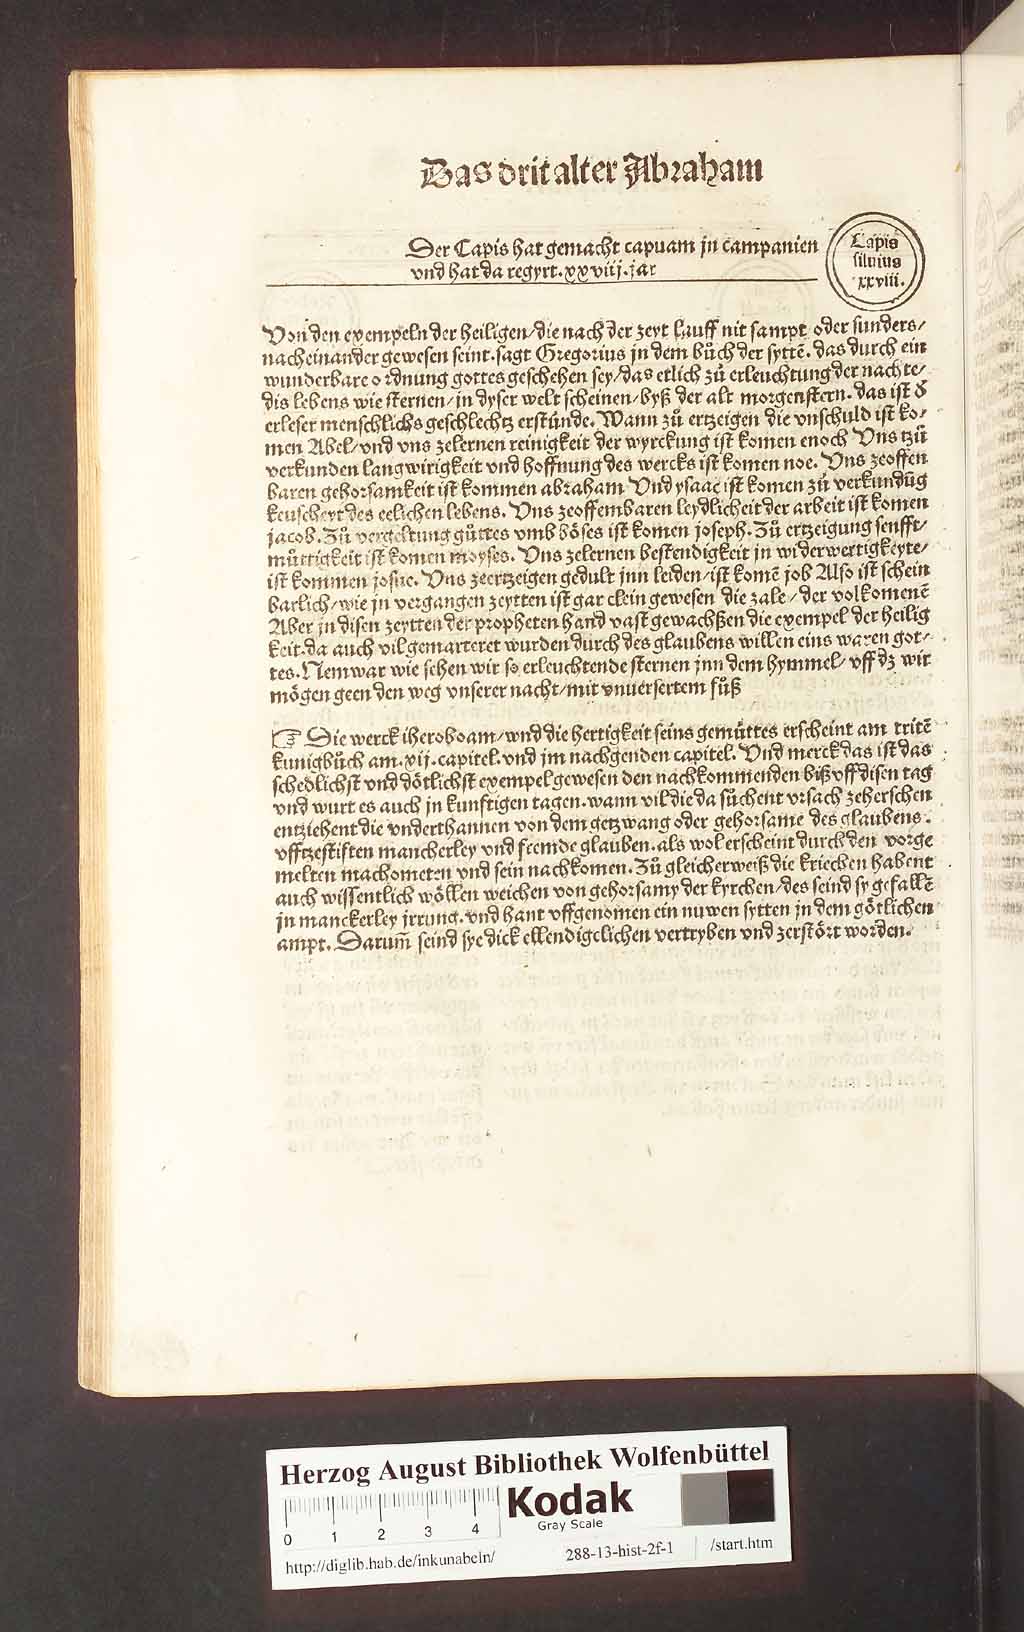 Das drit alter Abraham
Der Capis hat gemacht capuam jn campanien
vnd hat da regyrt. xxviij. jar
Capis
siluius
xxviii.
Von den exempeln der heiligen/die nach der zeyt lauff nit sampt oder sunders/
nacheinander gewesen seint. sagt Gregorius jn dem bůch der syttē. das durch ein
wunderbare ordnung gottes geschehen sey/das etlich zů erleuchtung der nachte/
dis lebens wie sternen/jn dyser welt scheinen/byß der alt morgenstern. das ist d̕
erleser menschlichs geschlechtz erstúnde. Wann zů ertzeigen die vnschuld ist ko/
men Abel/vnd vns zelernen reinigkeit der wyrckung ist komen enoch Vns tzů
verkunden langwirigkeit vnd hoffnung des wercks ist komen noe. Vns zeoffen
baren gehorsamkeit ist kommen abraham Vnd ysaac ist komen zů verkundūg
keuscheyt des eelichen lebens. Vns zeoffembaren leydlicheit der arbeit ist komen
jacob. Zů vergeltung gůttes vmb bőses ist komen joseph. Zů ertzeigung senfft/
můttigkeit ist komen moyses. Vns zelernen bestendigkeit in widerwertigkeyte/
ist kommen josue. Vns zeertzeigen gedult jnn leiden/ist komē job Also ist schein
barlich/wie jn vergangen zeytten ist gar clein gewesen die zale/der volkomenē
Aber jn disen zeytten der propheten hand vast gewachßen die exempel der heilig
keit. da auch vil gemarteret wurden durch des glaubens willen eins waren got/
tes. Nemwar wie sehen wir so erleuchtende sternen jnn dem hymmel/vff dz wir
mőgen geen den weg vnserer nacht/mit vnuersertem fůß
☞ Die werck iheroboam/vnd die hertigkeit seins gemůttes erscheint am tritē
kunigbůch am. xij. capitel. vnd jm nachgenden capitel. Vnd merck das ist das
schedlichst vnd dőtlichst exempel gewesen den nachkommenden biß vff disen tag
vnd wurt es auch jn kunftigen tagen. wann vil die da sůchent vrsach zeherschen
entziehent die vnderthannen von dem getzwang oder gehorsame des glaubens.
vfftzestiften mancherley vnd fremde glauben. als wol erscheint durch den vorge
melten machometen vnd sein nachkomen. Zů gleicherweiß die kriechen habent
auch wissentlich wőllen weichen von gehorsamy der kyrchen/des seind sy gefallē
jn manckerley jrrung. vnd hant vffgenomen ein nuwen sytten jn dem gőtlichen
ampt. Darum̄ seind sye dick ellendigclichen vertryben vnd zerstőrt worden.
Herzog August Bibliothek Wolfenbüttel
0 1 2 3 4
Kodak
Gray Scale
http://diglib.hab.de/inkunabeln/ 288-13-hist-2f-1 /start.htm